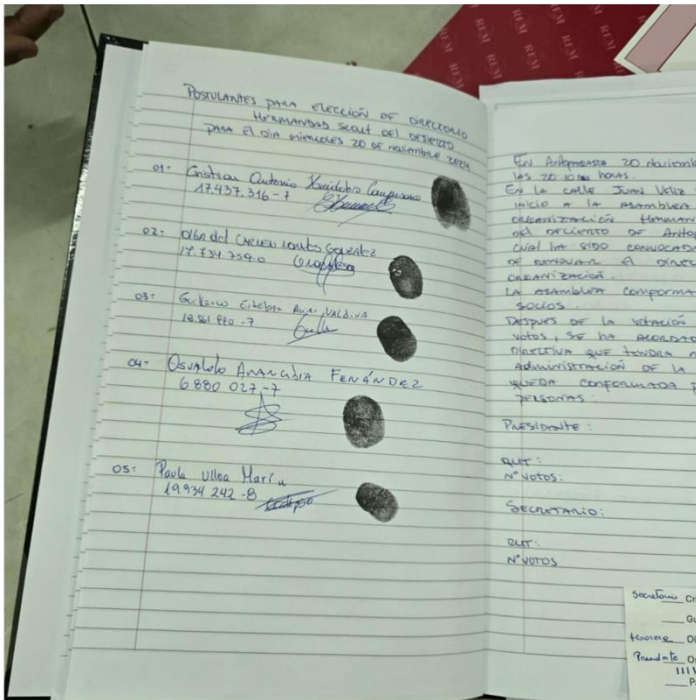 POSTULANTES PARA ELECCIÓN DE DIRECTORIO
HERMANDAD SCOUT DEL DESIERTO
PARA EL DIA MIERCOLES 20 DE NOVIEMBRE 2024
01- Cristian Antonio
17.437.316-7
02- OLGA del CARMEN
17.734.759-0
03- Gustavo Esteban
04- OSVALDO FENÁNDEZ
6880 027-7
05- Paola Ulloa Marín
19934 242-8
EN ANTOFAGASTA 20 NOVIEM
LAS 20:10 HORAS.
EN LA CALLE JUAN VELIZ
INICIO A LA ASAMBLEA
ORGANIZACIÓN HERMAN
DEL DESIERTO DE ANTO
CUAL HA SIDO CONVOCAD
DE RENOVAR EL DIREC
ORGANIZACIÓN.
LA ASAMBLEA CONFORMA
SOCIOS.
DESPUES DE LA VOTACIÓN
VOTOS, SE HA ACORDAD
DIRECTIVA QUE TENDRA
ADMINISTRACIÓN DE LA
QUEDA CONFORMADA
PERSONAS:
PRESIDENTE:
RUT:
N° VOTOS:
SECRETARIO:
RUT:
N° VOTOS
Secretario Cr
Gu
tesorero Ol
Presidente Os
P
REM REM REM REM REM